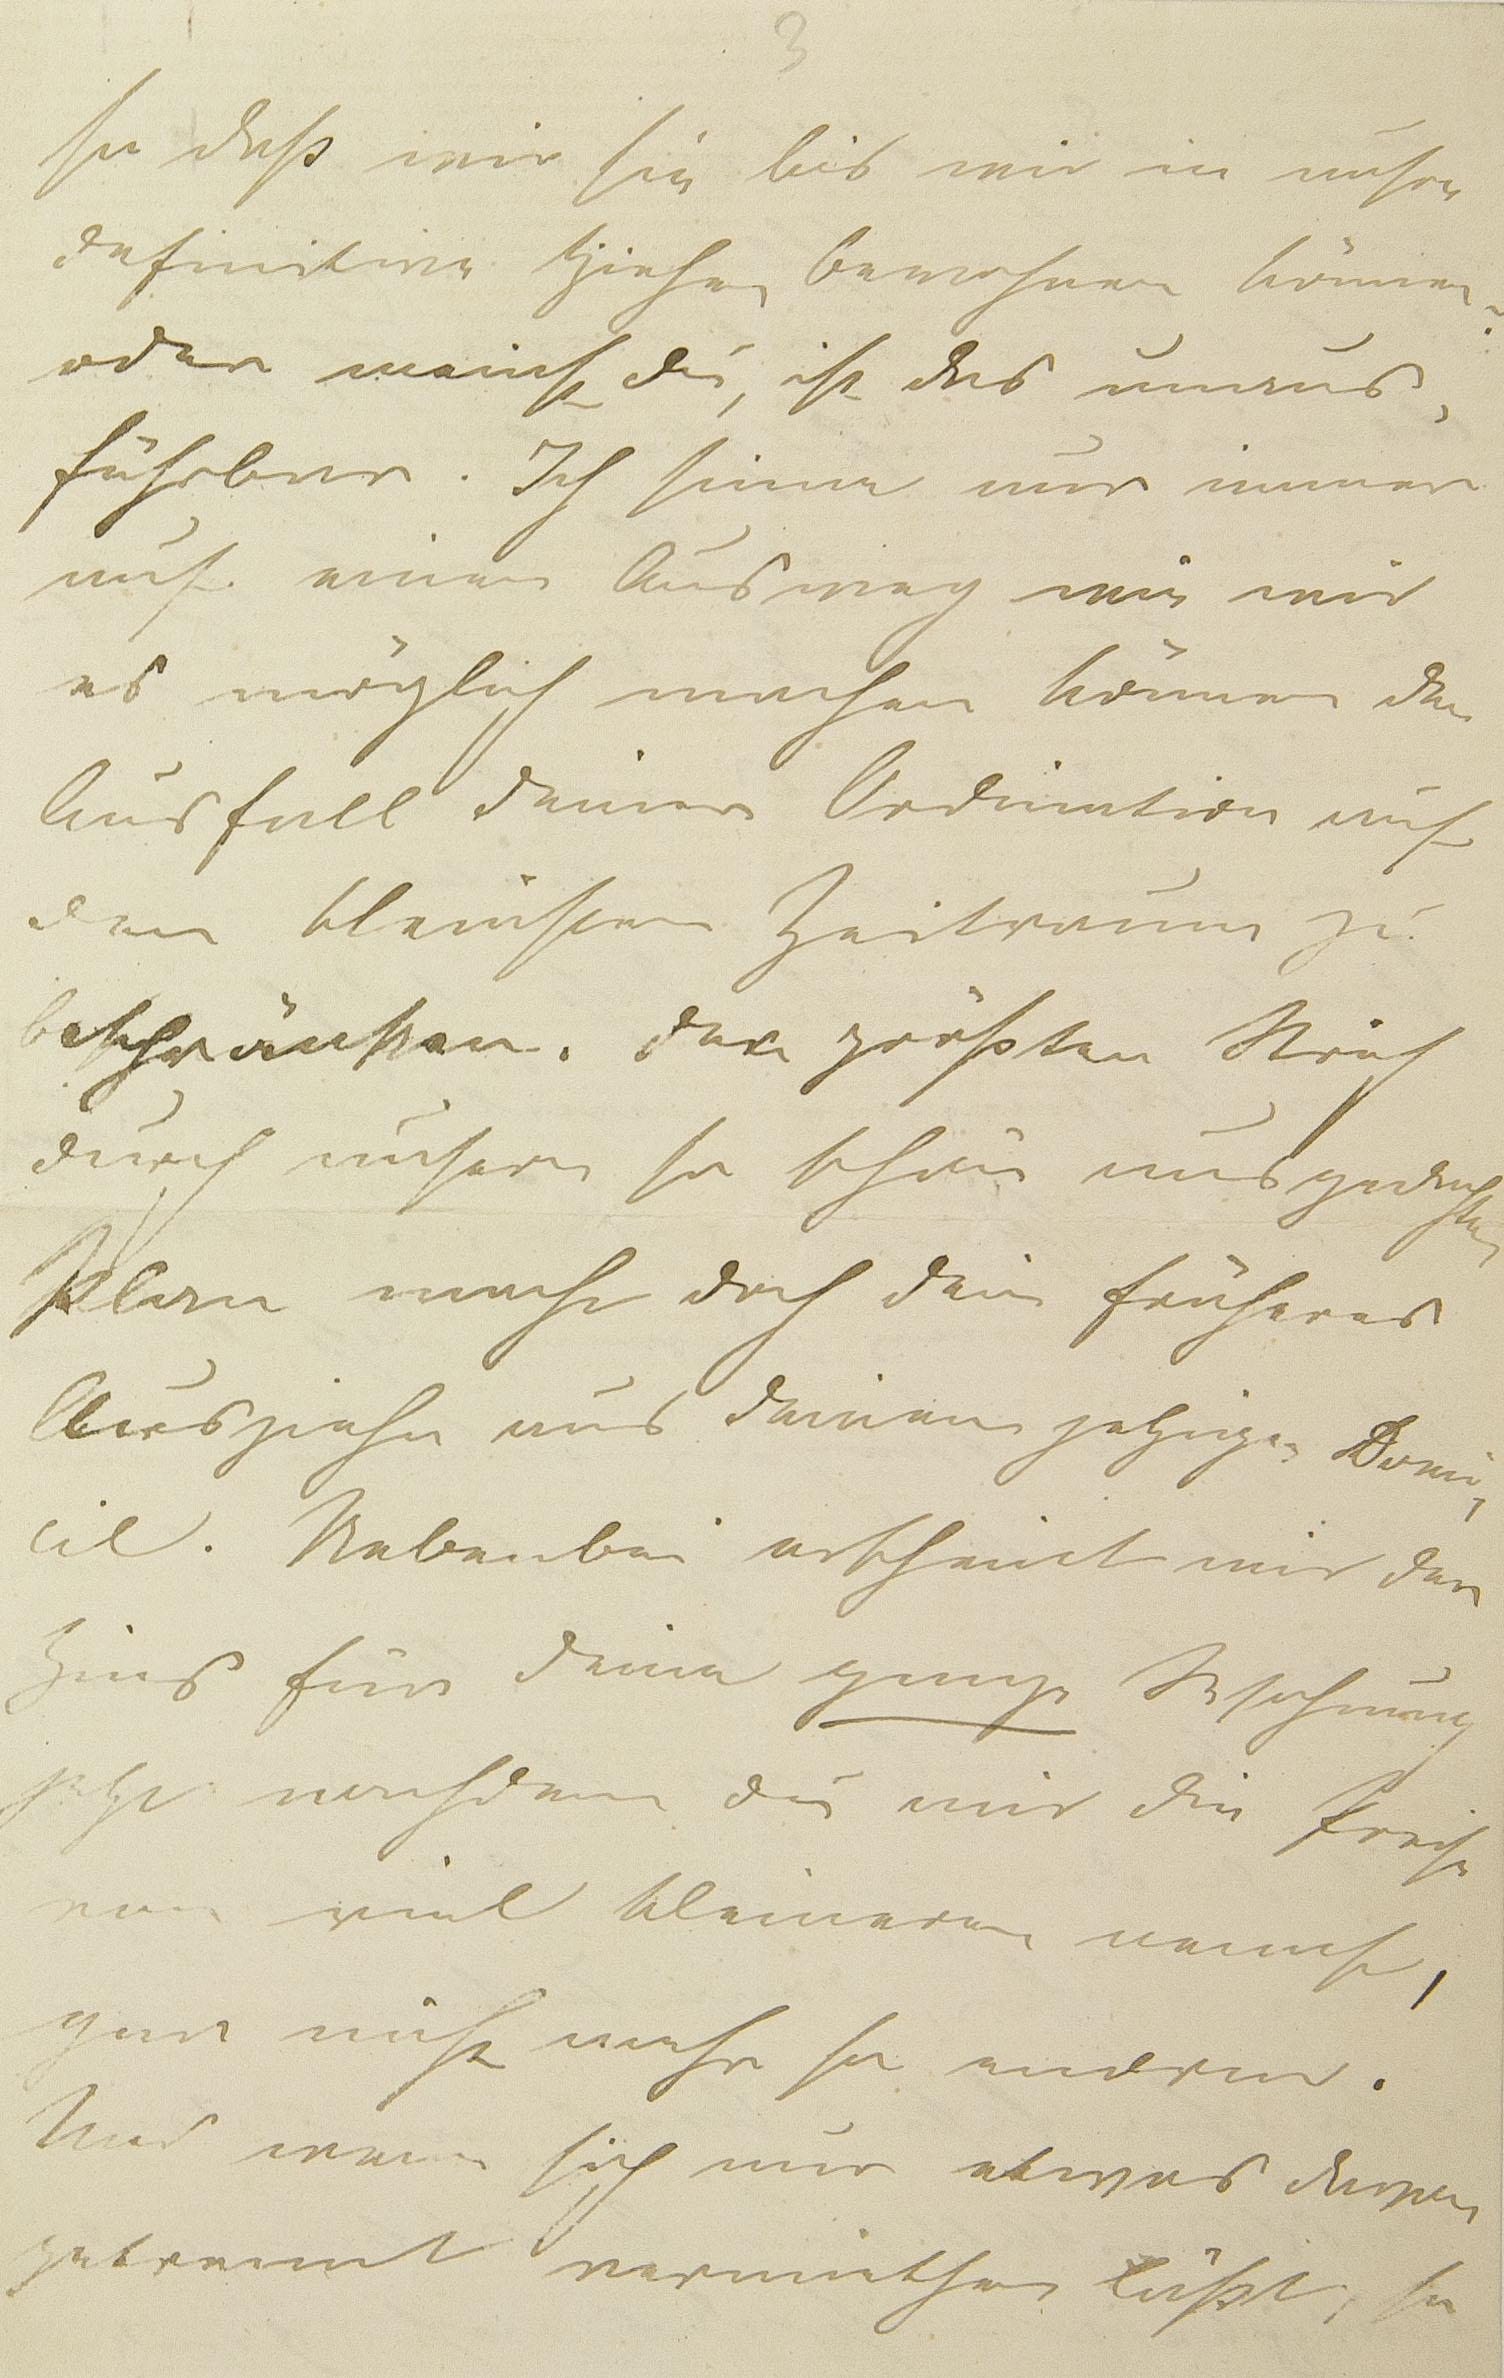 3
so daß wir sie bis wir in unsre
definitive ziehen bewohnen können?
oder meinst du, ist das unaus-
führbar. Ich sinne nur immer
auf einen Ausweg wie wir
es möglich machen können den
Ausfall deiner Ordination auf
den kleinsten Zeitraum zu
beschränken. Den größten Strich
durch unsern so schön ausgedachten
Plan macht doch dein früheres
Ausziehn aus deinem jetzigen Domi-
cil. Nebenbei erscheint mir der
Zins für deine ganze Wohnung
jetzt nachdem du mir die Preise
von viel kleineren nennst,
gar nicht mehr so enorm.
Und wenn sich nur etwas davon
getrennt vermiethen läßt, so